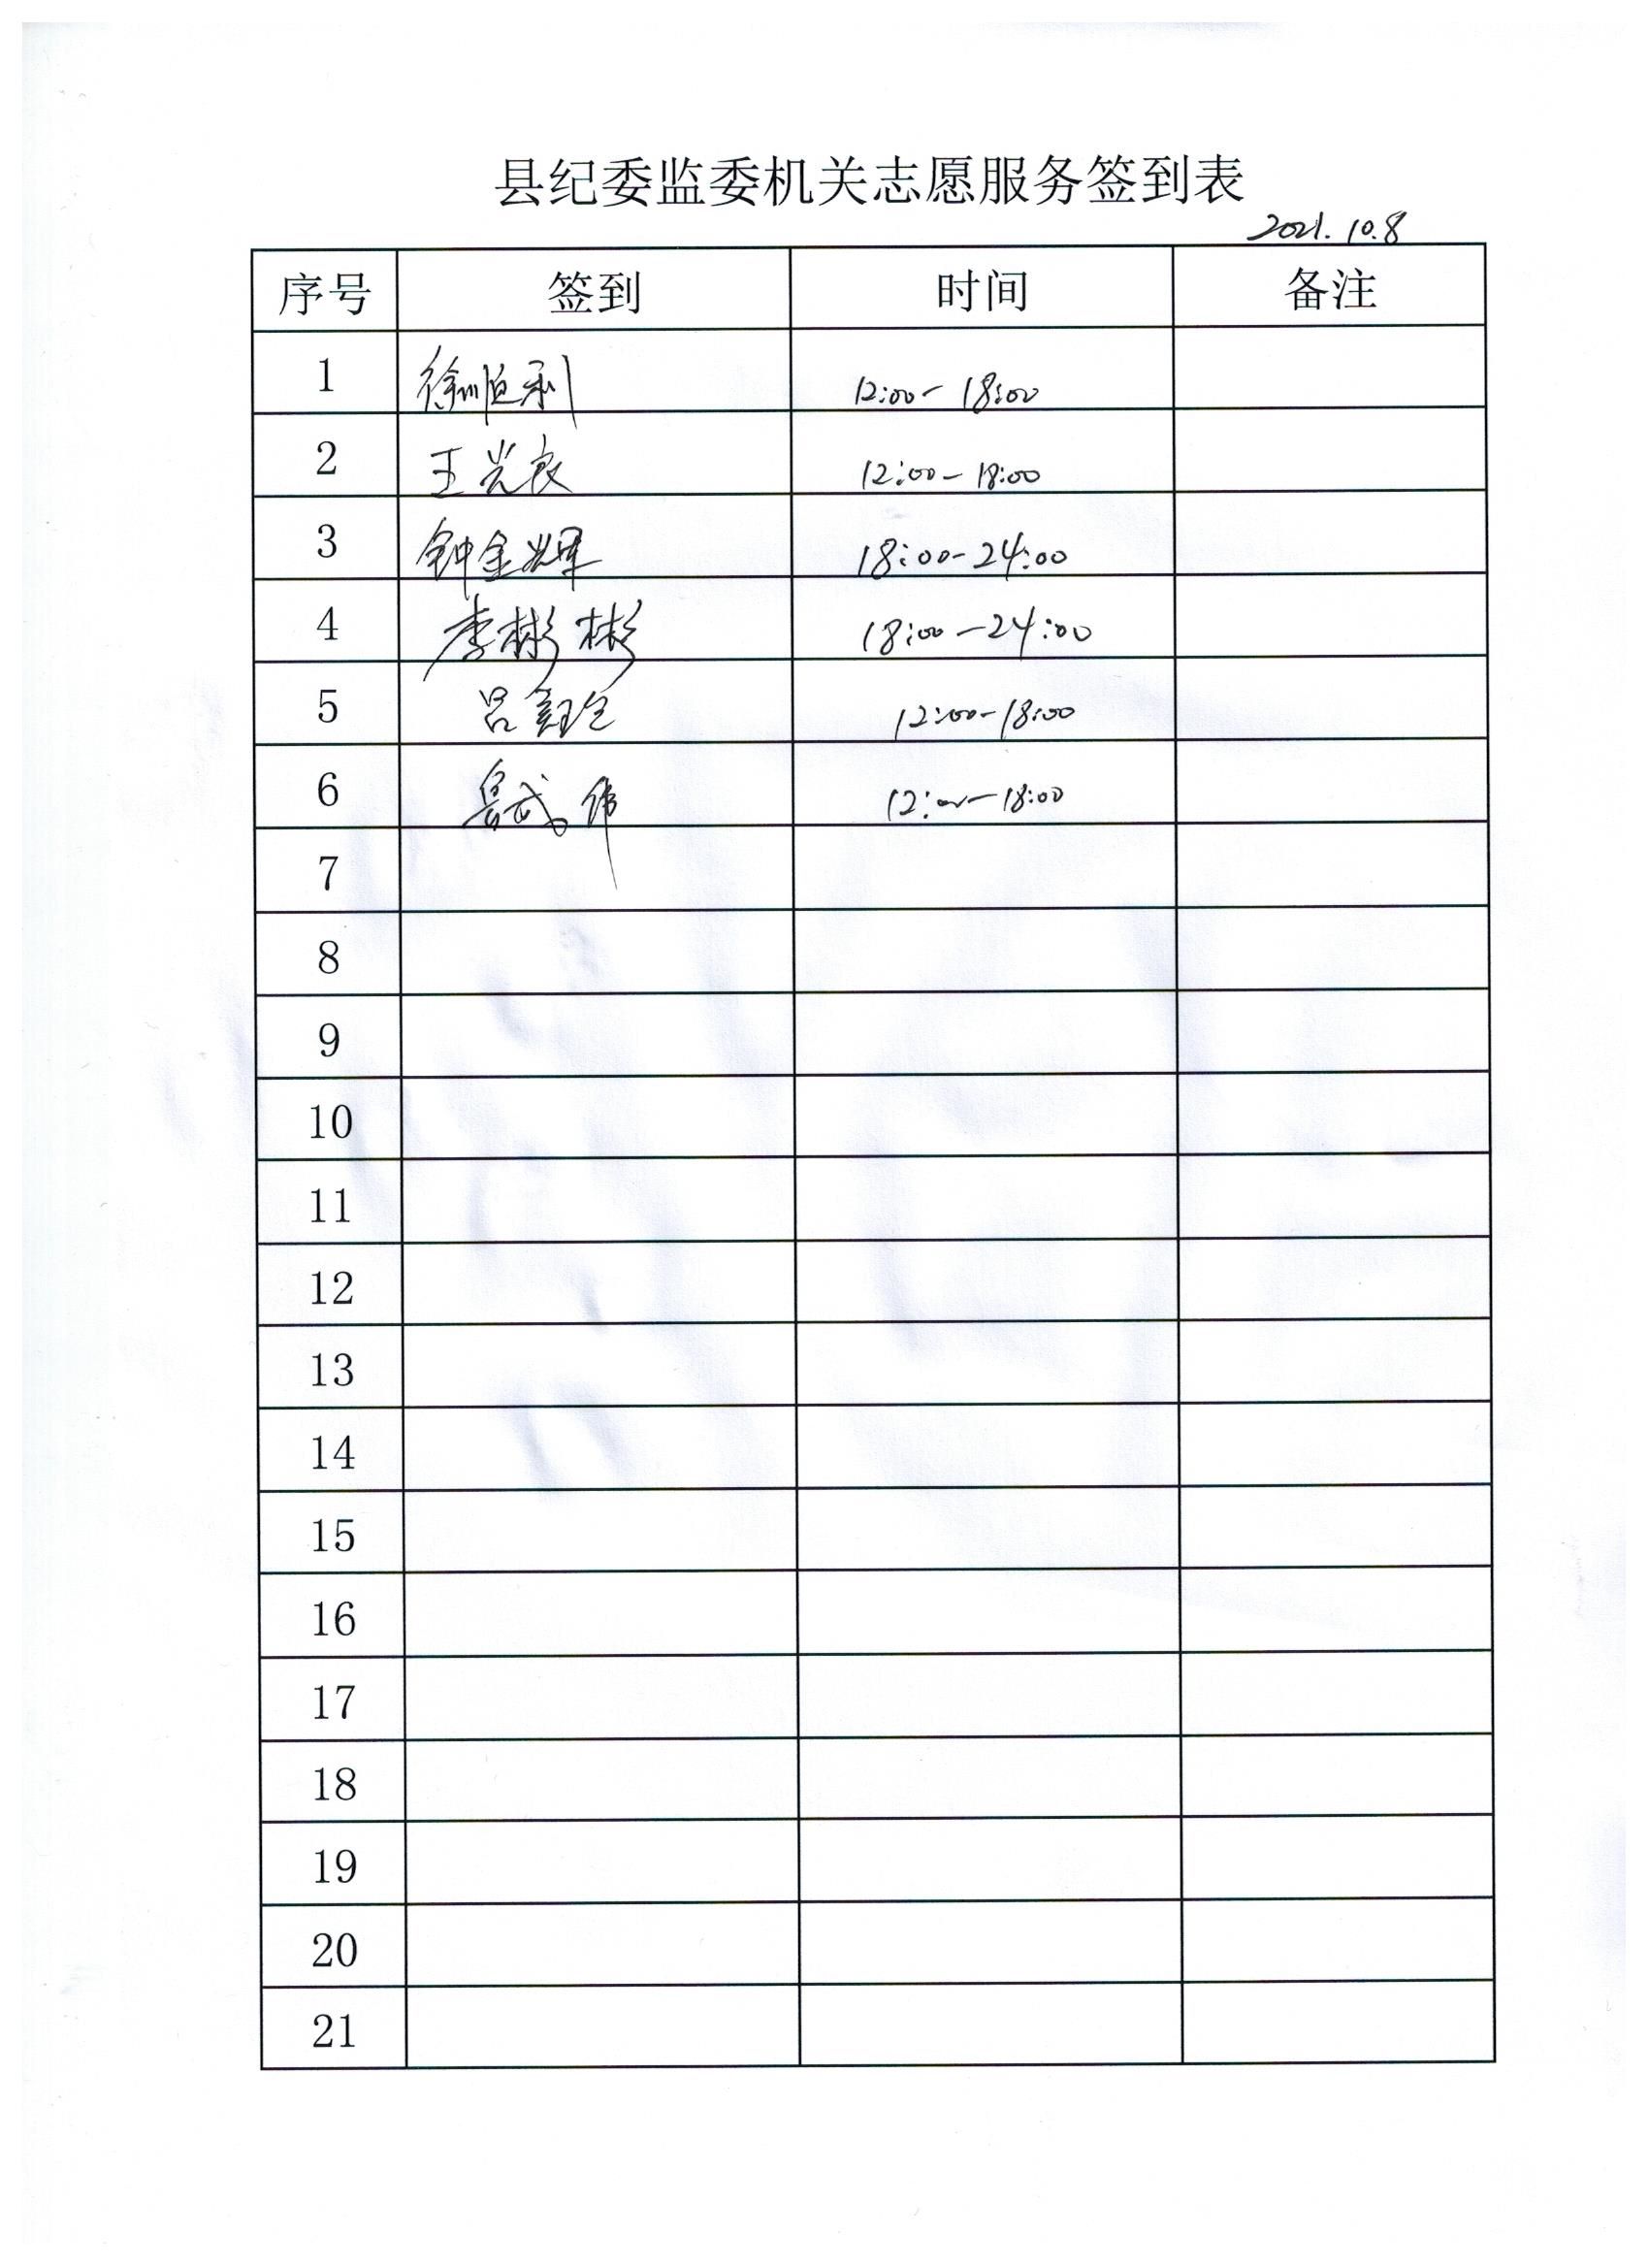 县纪委监委机关志愿服务签到表
2021.10.8
序号 签到 时间 备注
1 徐恒利 12:00-18:00
2 王光良 12:00-18:00
3 钟金辉 18:00-24:00
4 李彬彬 18:00-24:00
5 吕 12:00-18:00
6 12:00-18:00
7
8
9
10
11
12
13
14
15
16
17
18
19
20
21